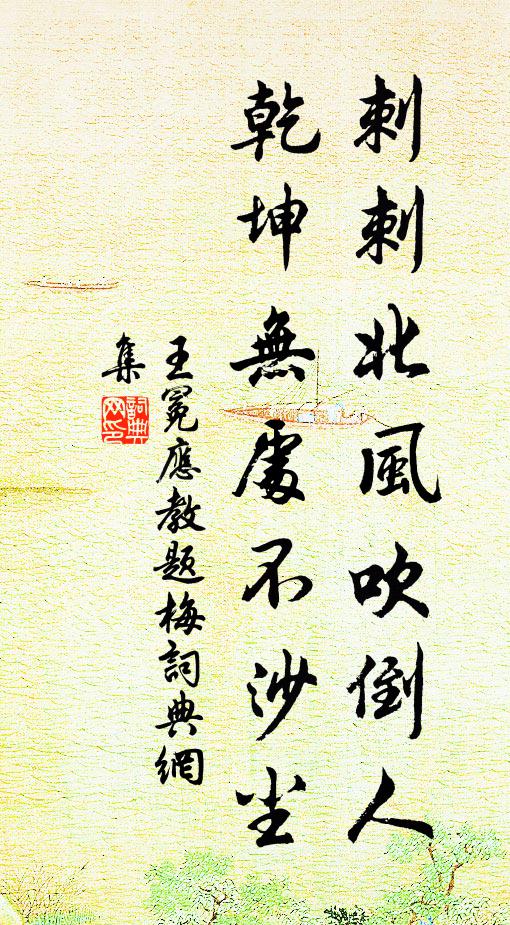 刺刺北風吹倒人
乾坤無處不沙尘
王冕應教题梅詞典網
集
詞典
网印